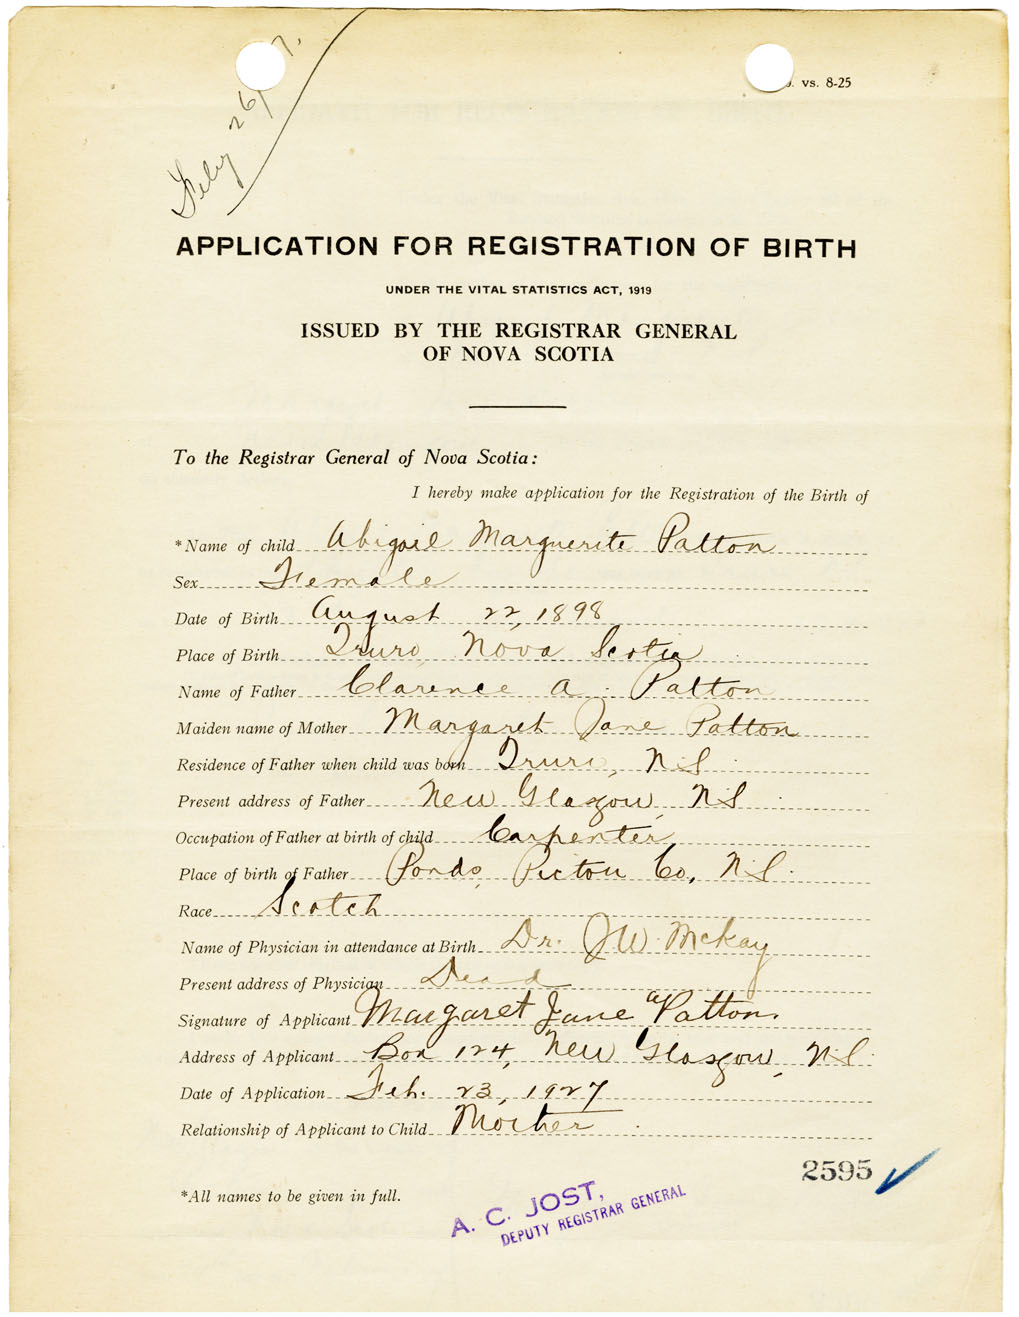 Feby 26/ 7.
. vs. 8-25
APPLICATION FOR REGISTRATION OF BIRTH
UNDER THE VITAL STATISTICS ACT, 1919
ISSUED BY THE REGISTRAR GENERAL
OF NOVA SCOTIA
To the Registrar General of Nova Scotia:
I hereby make application for the Registration of the Birth of
*Name of child Abigail Marguerite Patton
Sex Female
Date of Birth August 22, 1898
Place of Birth Truro, Nova Scotia
Name of Father Clarence A. Patton
Maiden name of Mother Margaret Jane Patton
Residence of Father when child was born Truro, N.S.
Present address of Father New Glasgow, N.S.
Occupation of Father at birth of child Carpenter
Place of birth of Father Ponds, Pictou Co, N.S.
Race Scotch
Name of Physician in attendance at Birth Dr. J W. McKay
Present address of Physician Dead
Signature of Applicant Margaret Jane Patton.
Address of Applicant Box 124, New Glasgow, N.S.
Date of Application Feb. 23, 1927
Relationship of Applicant to Child Mother
2595
*All names to be given in full.
A. C. JOST,
DEPUTY REGISTRAR GENERAL